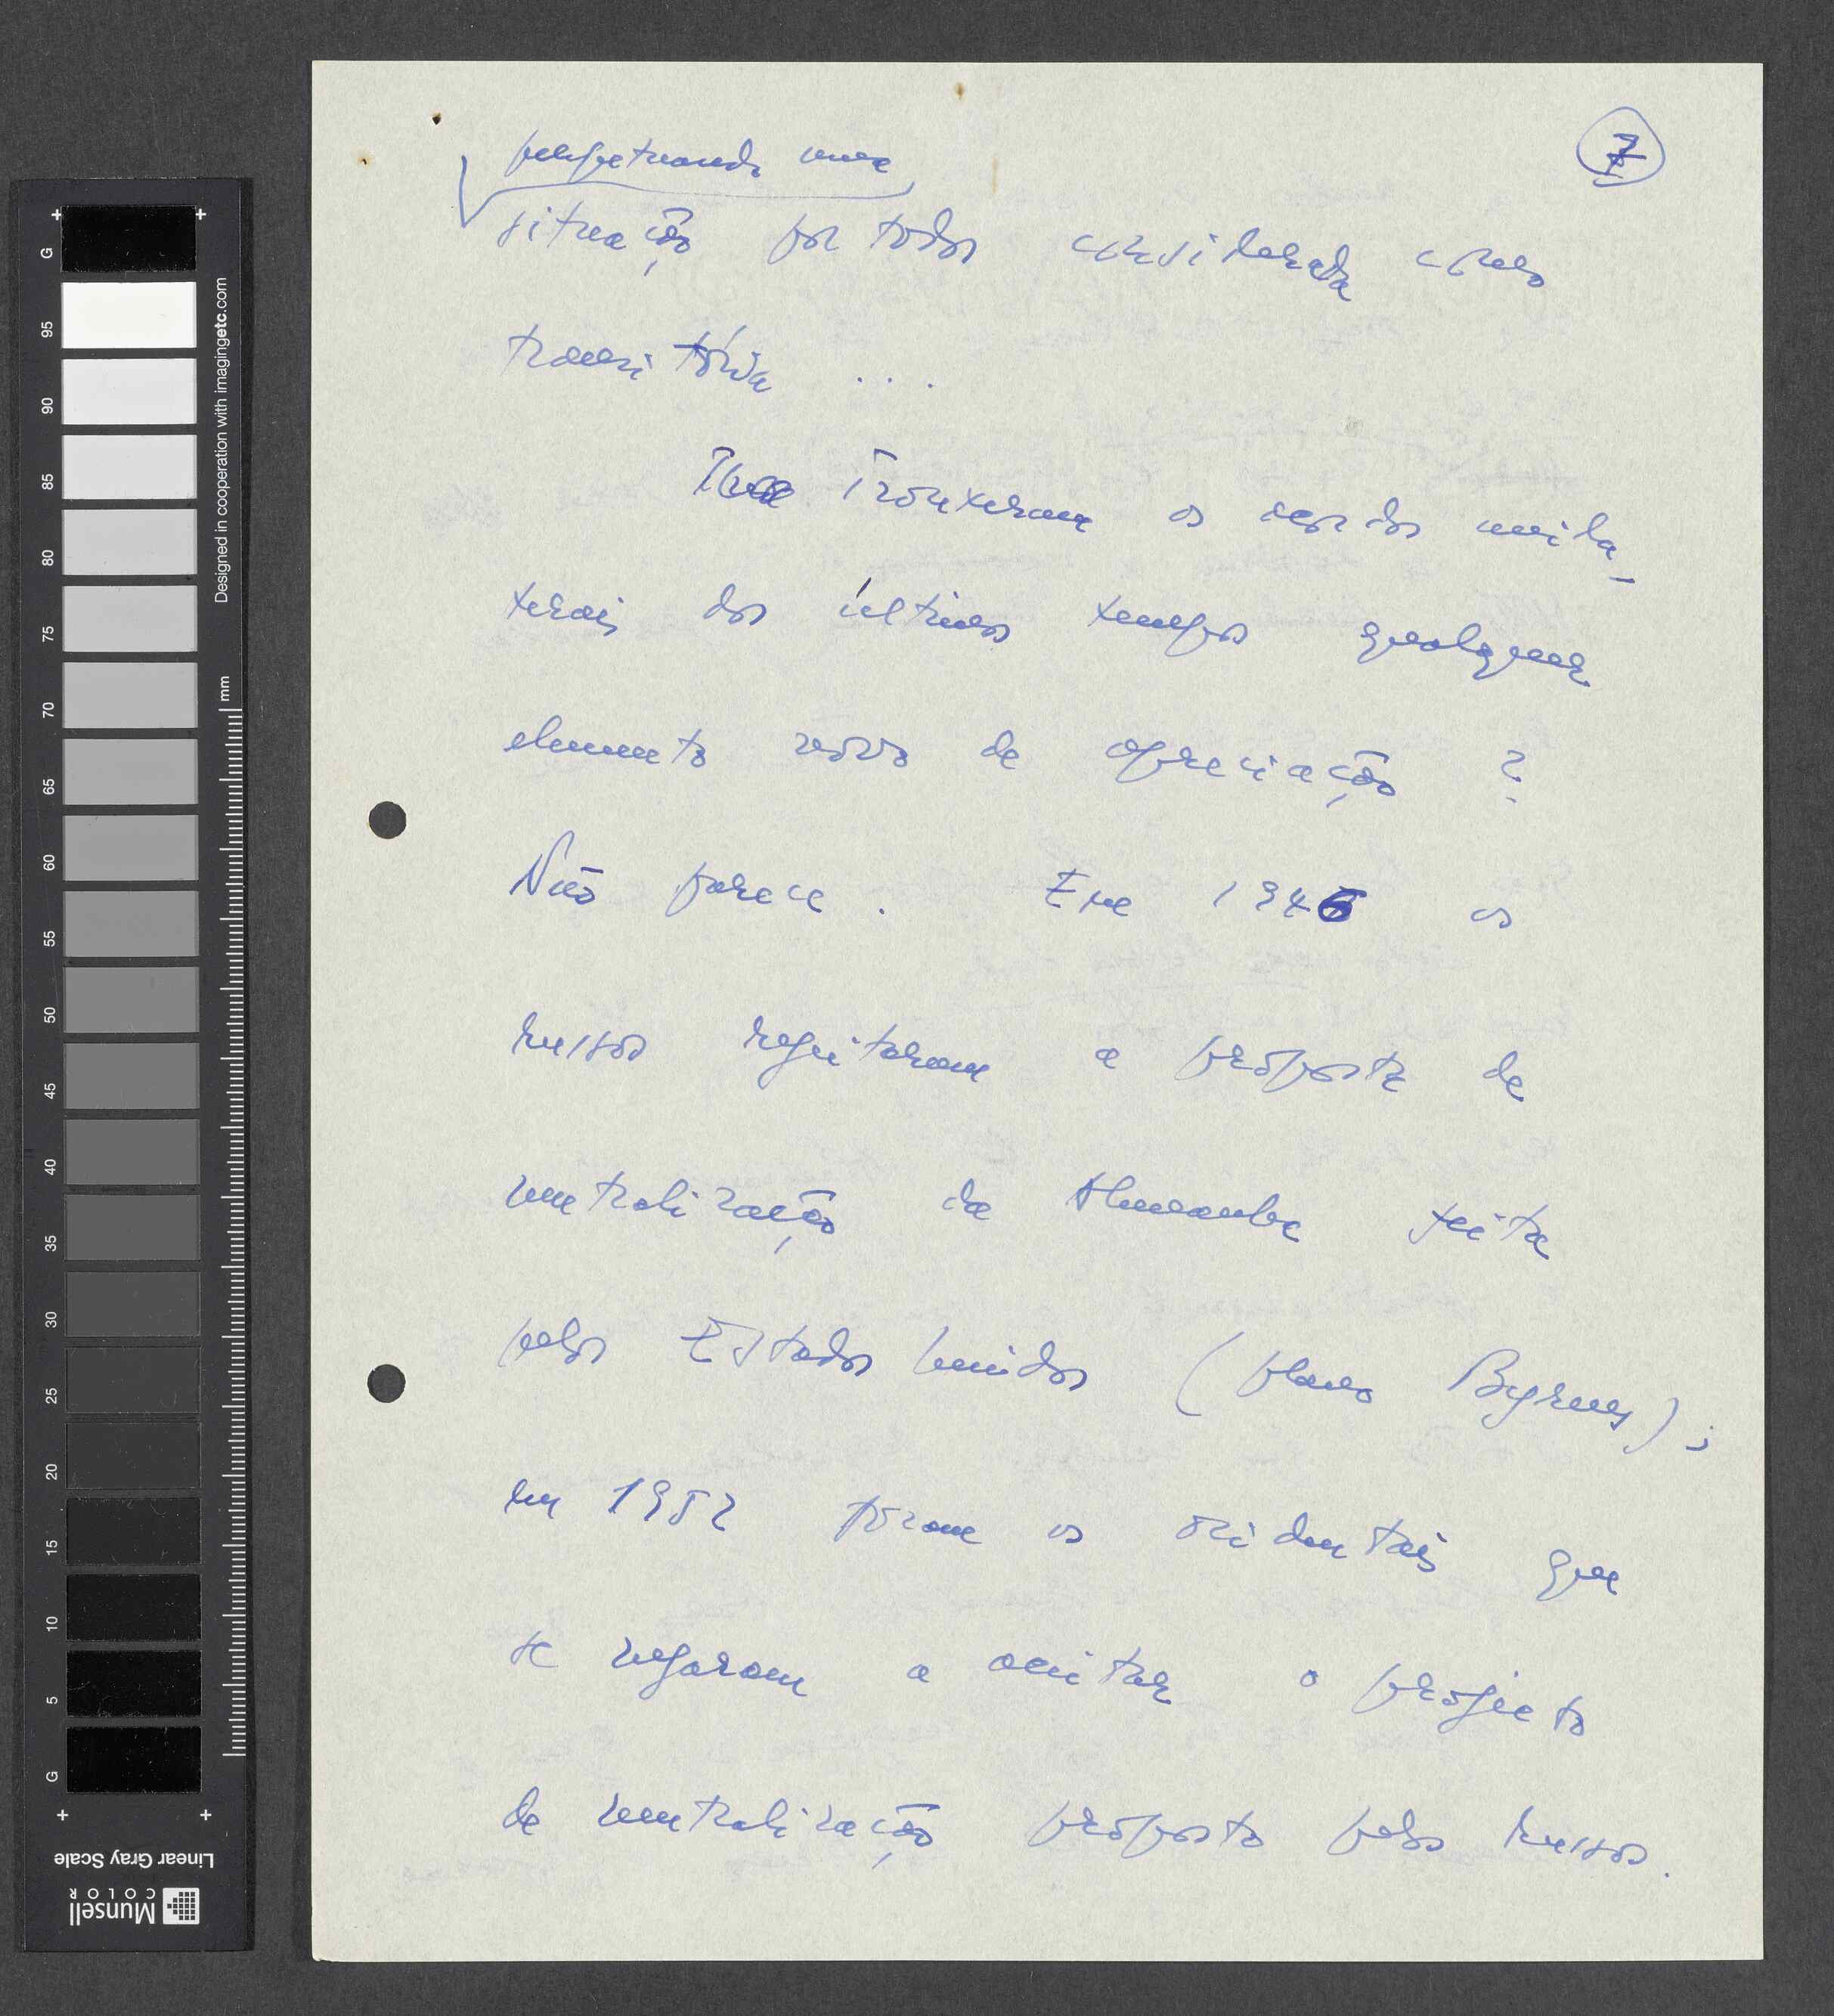 7
perpetuando uma
situação por todos considerada como
transitória ...
Trouxeram os acordos unila-
terais dos últimos tempos qualquer
elemento novo de apreciação ?
Não parece . Em 1946 os
russos rejeitaram a proposta de
neutralização da Alemanha feita
pelos Estados Unidos ( plano Byrnes ) ;
em 1952 foram os ocidentais que
se negaram a aceitar o projecto
de neutralização proposto pelos russos.
G
95
90
85
80
75
70
65
60
55
50
45
40
35
30
25
20
15
10
5
G
mm
Designed in cooperation with imagingetc.com
Linear Gray Scale
Munsell
COLOR